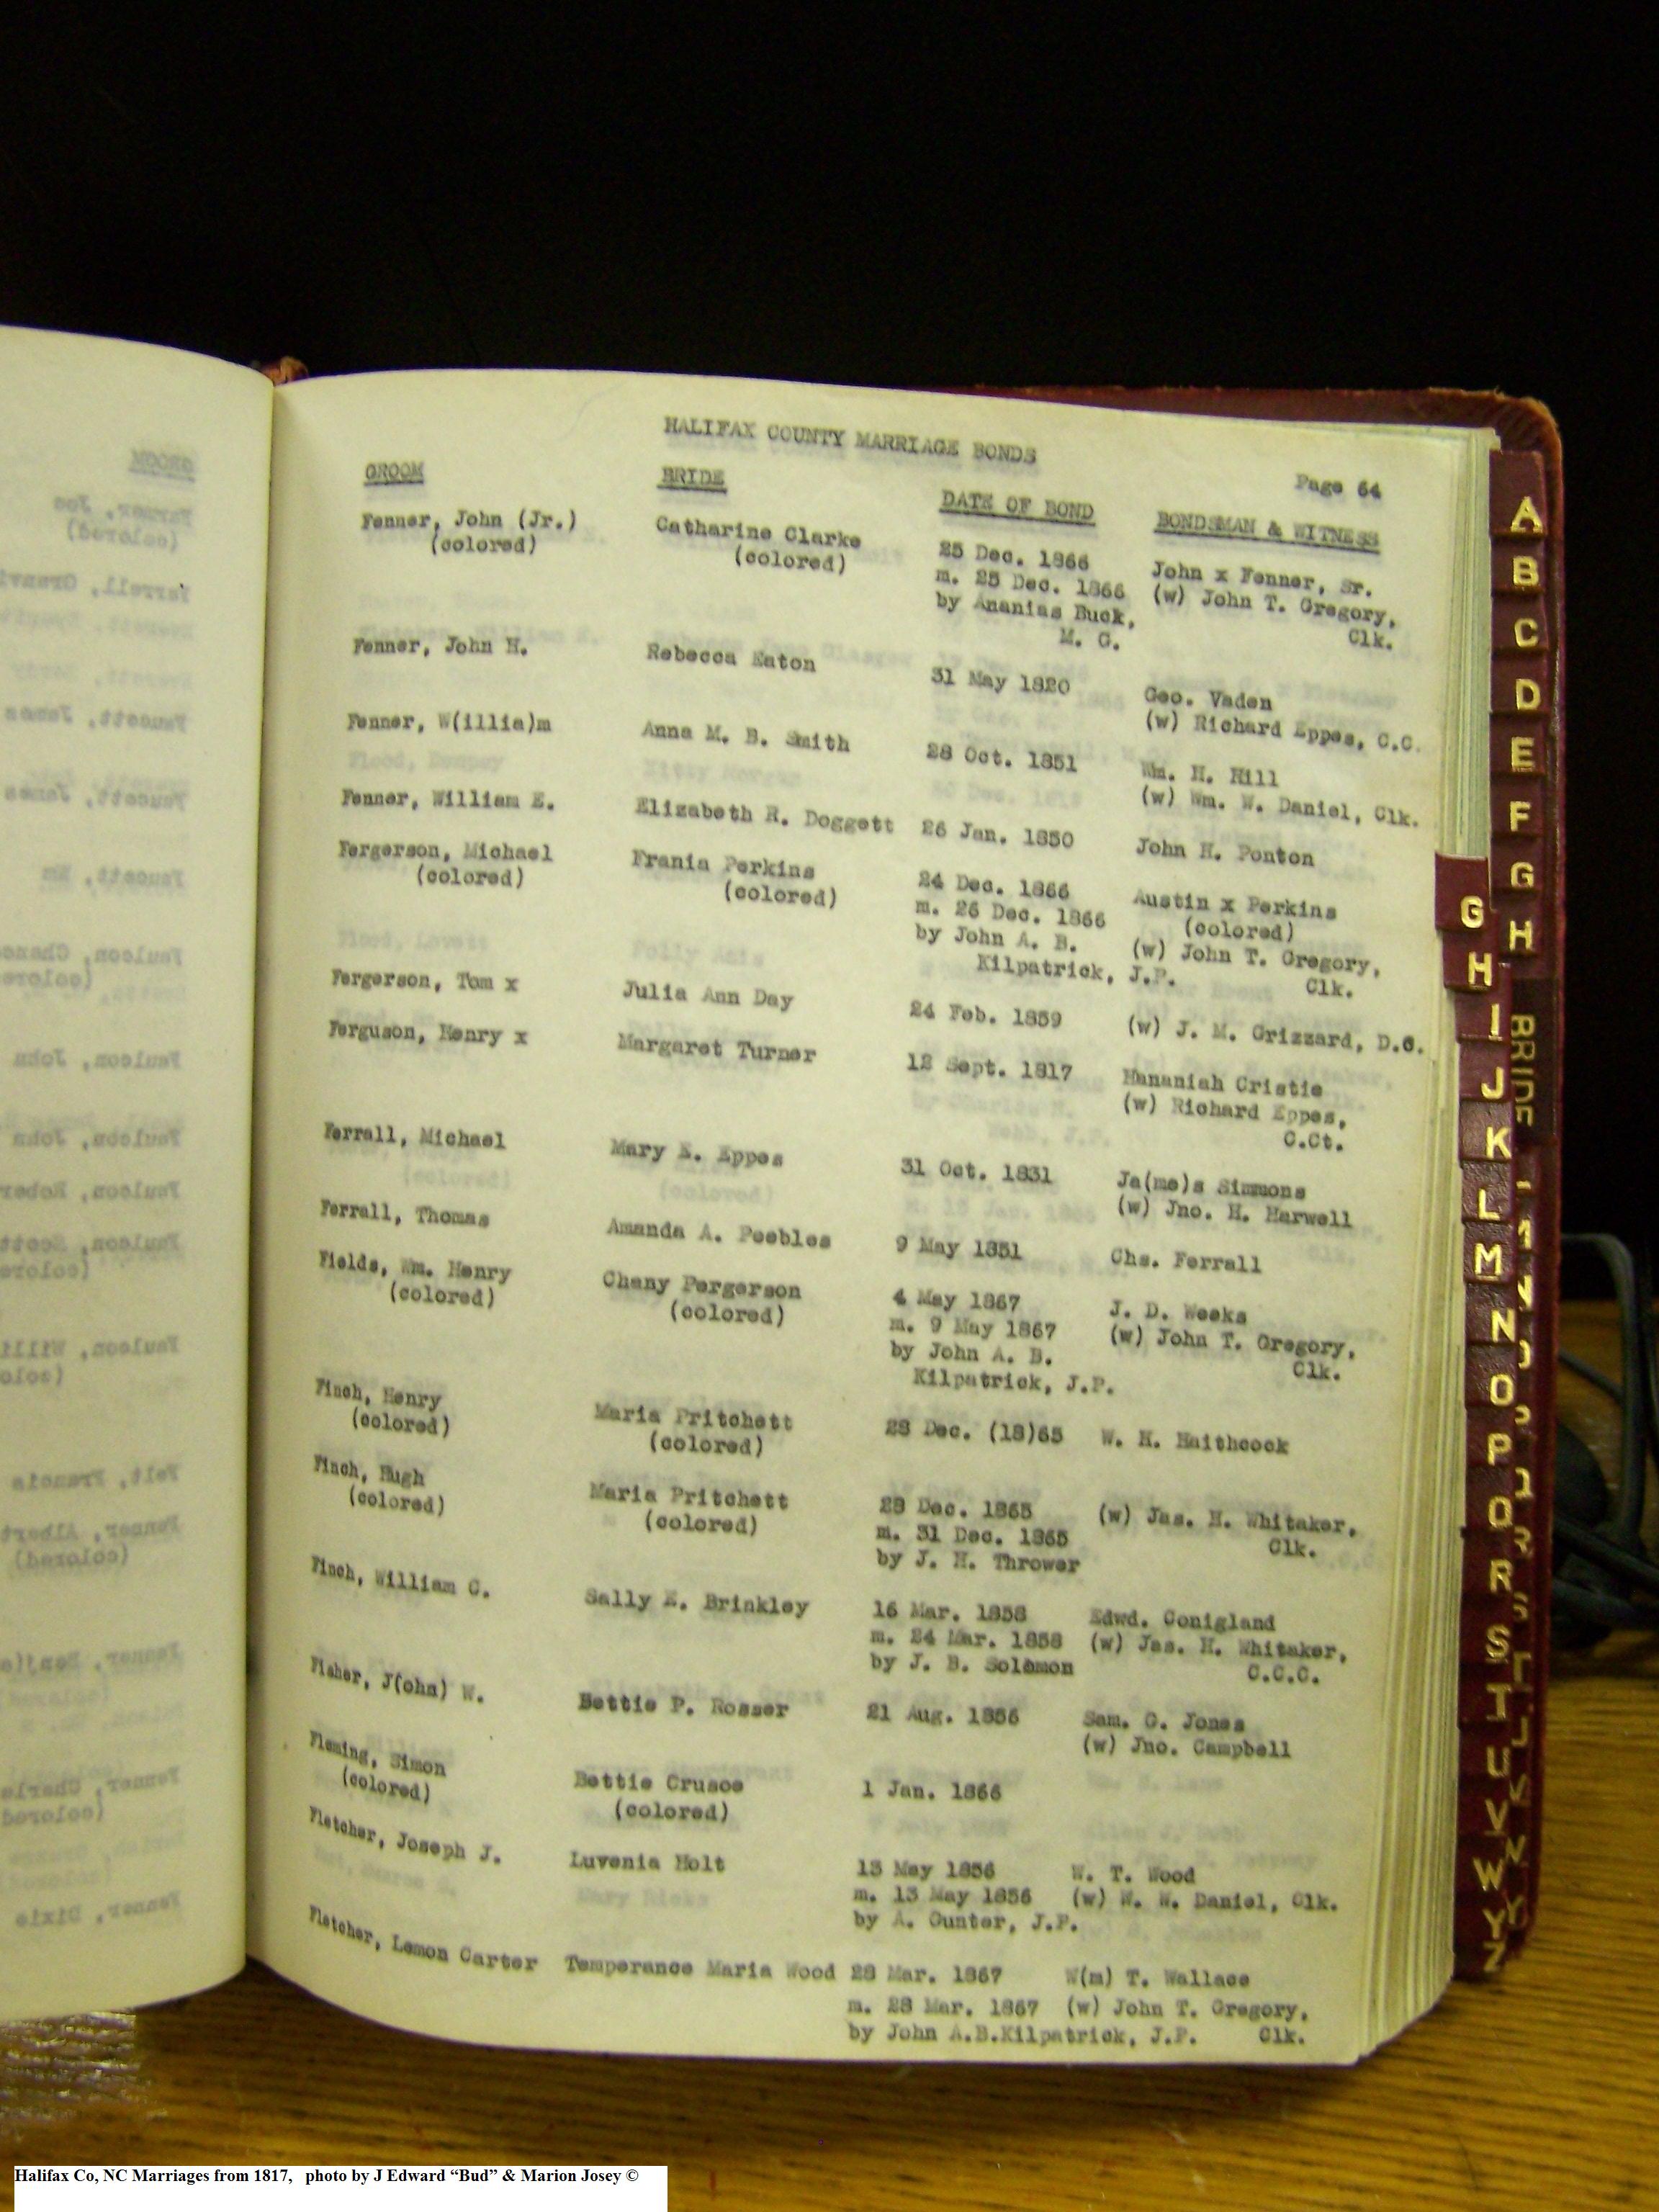 HALIFAX COUNTY MARRIAGE BONDS
Page 64
GROOM BRIDE DATE OF BOND BONDSMAN & WITNESS
Fenner, John (Jr.) Catharine Clarke 25 Dec. 1866 John x Fenner, Sr.
(colored) (colored) m. 25 Dec. 1866 (w) John T. Gregory,
by Ananias Buck, Clk.
M. G.
Fenner, John H. Rebecca Eaton 31 May 1820 Geo. Vaden
(w) Richard Eppes, C.C.
Fenner, W(illia)m Anna M. B. Smith 28 Oct. 1851 Wm. H. Hill
(w) Wm. W. Daniel, Clk.
Fenner, William E. Elizabeth R. Doggett 26 Jan. 1850 John H. Ponton
Fergerson, Michael Frania Perkins 24 Dec. 1866 Austin x Perkins
(colored) (colored) m. 26 Dec. 1866 (colored)
by John A. B. (w) John T. Gregory,
Kilpatrick, J.P. Clk.
Fergerson, Tom x Julia Ann Day 24 Feb. 1859 (w) J. M. Grizzard, D.C.
Ferguson, Henry x Margaret Turner 12 Sept. 1817 Hananiah Cristie
(w) Richard Eppes,
C.Ct.
Ferrall, Michael Mary E. Eppes 31 Oct. 1831 Ja(me)s Simmons
(w) Jno. H. Harwell
Ferrall, Thomas Amanda A. Peebles 9 May 1851 Chs. Ferrall
Fields, Wm. Henry Chany Pergerson 4 May 1867 J. D. Weeks
(colored) (colored) m. 9 May 1867 (w) John T. Gregory,
by John A. B. Clk.
Kilpatrick, J.P.
Finch, Henry Maria Pritchett 28 Dec. (18)65 W. H. Haithcock
(colored) (colored)
Finch, Hugh Maria Pritchett 28 Dec. 1865 (w) Jas. H. Whitaker,
(colored) (colored) m. 31 Dec. 1865 Clk.
by J. H. Thrower
Finch, William C. Sally E. Brinkley 16 Mar. 1858 Edwd. Conigland
m. 24 Mar. 1858 (w) Jas. H. Whitaker,
by J. B. Solomon C.C.C.
Fisher, J(ohn) W. Bettie P. Rosser 21 Aug. 1856 Sam. G. Jones
(w) Jno. Campbell
Fleming, Simon Bettie Crusoe 1 Jan. 1866
(colored) (colored)
Fletcher, Joseph J. Luvenia Holt 13 May 1856 W. T. Wood
m. 13 May 1856 (w) W. W. Daniel, Clk.
by A. Gunter, J.P.
Fletcher, Lemon Carter Temperance Maria Wood 28 Mar. 1867 W(m) T. Wallace
m. 28 Mar. 1867 (w) John T. Gregory,
by John A.B.Kilpatrick, J.P. Clk.
A
B
C
D
E
F
G
H
BRIDE
G
H
I
J
K
L
M
N
O
P
Q
R
S
T
U
V
W
Y
Z
Halifax Co, NC Marriages from 1817, photo by J Edward “Bud” & Marion Josey ©